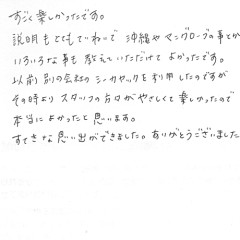 すごく楽しかったです。
説明もとてもていねいで 沖縄や マングローブの事とか
いろいろな事も 教えて いただけて よかったです。
以前 別の会社の シーカヤックを 利用したのですが
その時より スタッフの方々が やさしくて 楽しかったので
本当に よかったと 思います。
すてきな 思い出が できました。ありがとうございました